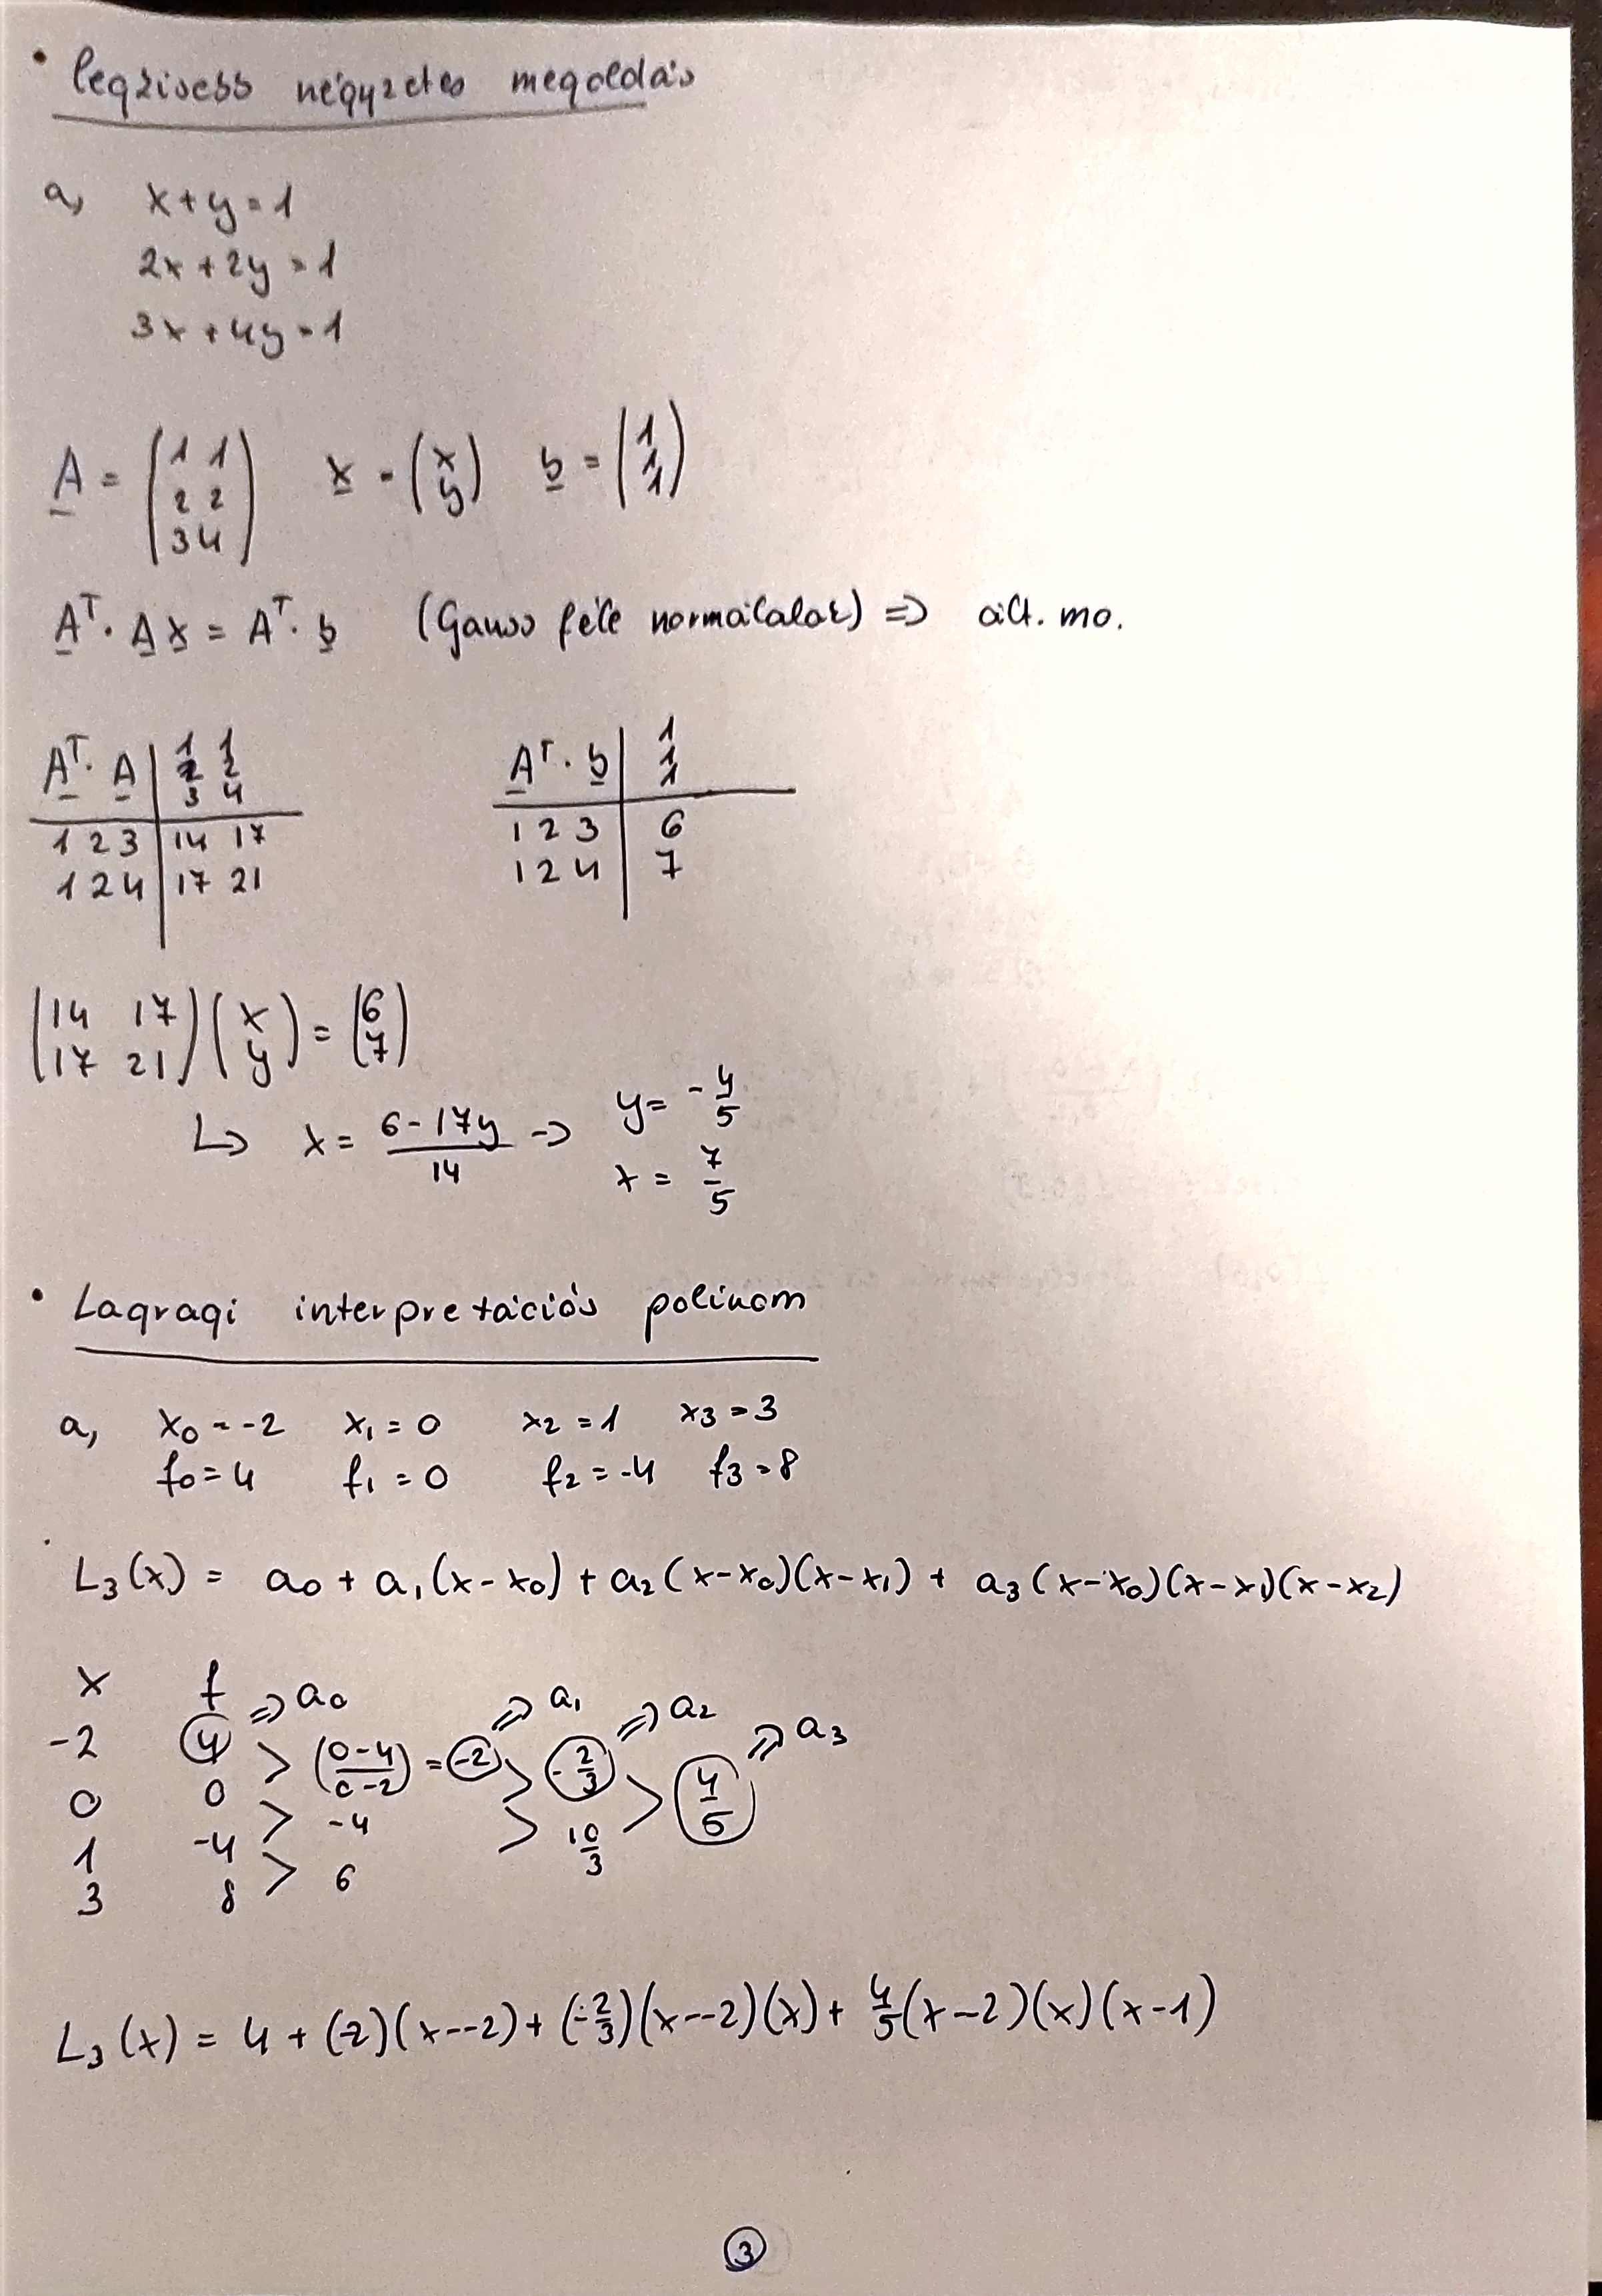 • legkisebb négyzetes megoldás
a, x+y=1
2x+2y=1
3x+4y=1
A = (1 1 2 2 3 4) x = (x y) b = (1 1 1)
Aᵀ · A x = Aᵀ · b (Gauss féle normálalak) => ált. mo.
Aᵀ · A | 1 1 Aᵀ · b | 1
2 2 1
3 4 1
1 2 3 | 14 17 1 2 3 | 6
1 2 4 | 17 21 1 2 4 | 7
(14 17 17 21)(x y) = (6 7)
↳ x = (6-17y)/14 -> y = -4/5
x = 7/5
• Lagragi interpretációs polinom
a, x₀ = -2 x₁ = 0 x₂ = 1 x₃ = 3
f₀ = 4 f₁ = 0 f₂ = -4 f₃ = 8
L₃(x) = a₀ + a₁(x-x₀) + a₂(x-x₀)(x-x₁) + a₃(x-x₀)(x-x₁)(x-x₂)
x f => a₀ => a₁ => a₂ => a₃
-2 4 > (0-4)/(0--2) = -2 > -2/3 > 4/5
0 0 > -4 > 10/3
1 -4 > 6
3 8
L₃(x) = 4 + (-2)(x--2) + (-2/3)(x--2)(x) + 4/5(x-2)(x)(x-1)
3